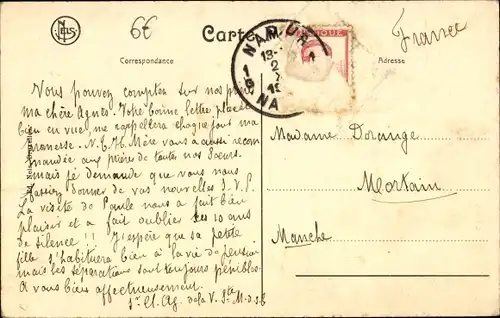 NELS
6€
Carte
France
NAMUR
NAMUR
1
1
13-
BELGIQUE
Correspondance
Adresse
Vous pouvez compter sur nos
ma chère Agnès. Votre bonne lettre, placée
bien en vue, me rappellera chaque jour ma
promesse. N. T. H. Mère vous a aussi recom-
mandée aux prières de toutes nos Soeurs.
mais je demande que vous nous
fassiez donner de vos nouvelles S.V.P.
La visite de Paule nous a fait bien
plaisir et a fait oublier les 10 ans
de silence !! J'espère que sa petite
fille s'habituera bien à la vie de pension
mais les séparations sont toujours pénibles.
A vous bien affectueusement.
Sr. Cl. Ag. de la V. Ste M. d. S. C.
Madame Dorange
Mortain
Manche